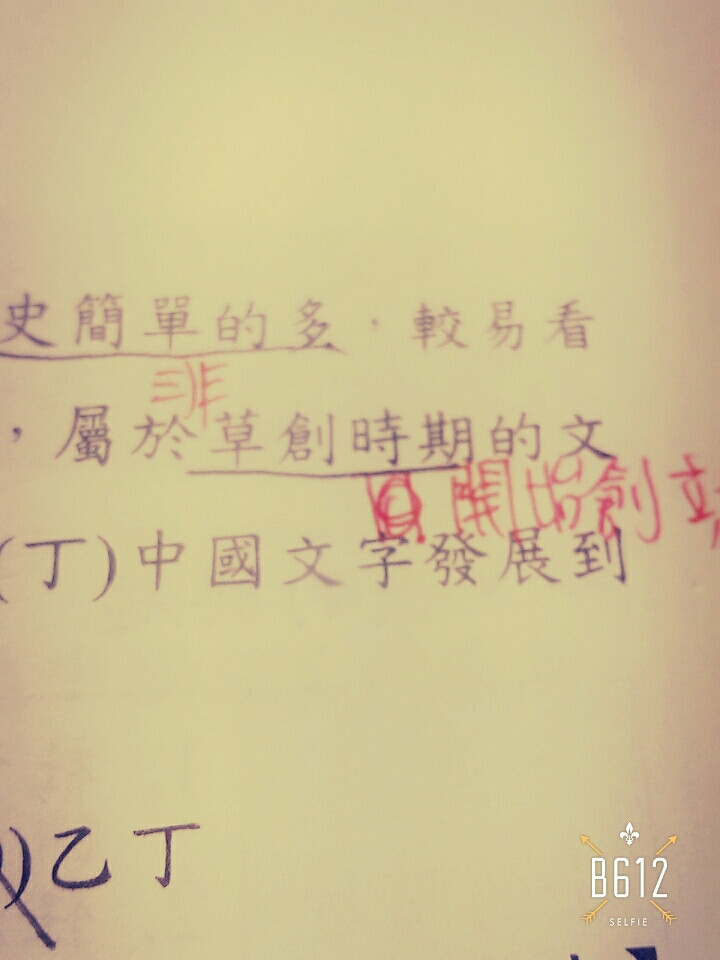 史簡單的多，較易看
非
，屬於草創時期的文
開始創立
(丁)中國文字發展到
)乙丁
B612
SELFIE